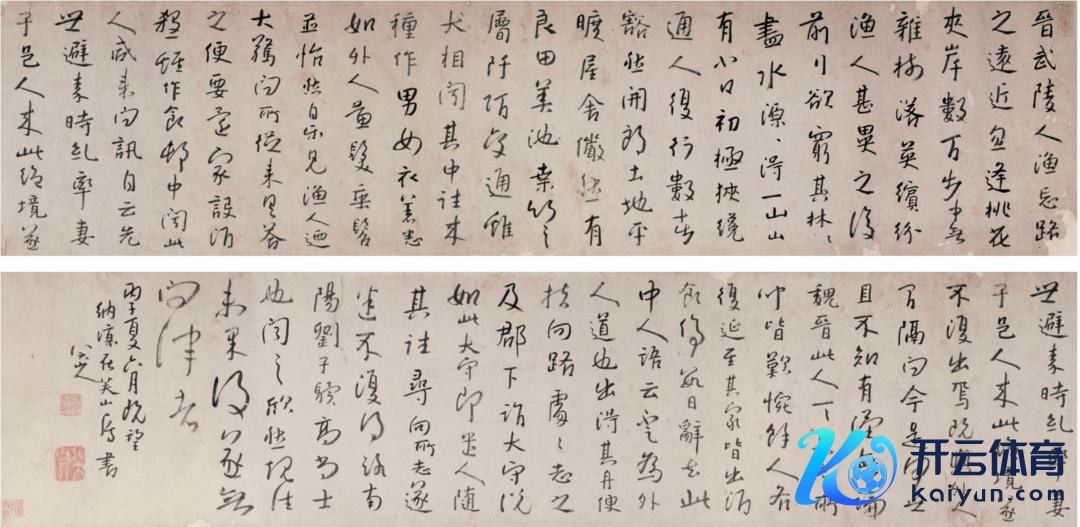 晉武陵人漁忘路
之遠近忽逢桃花
夾岸數百步
雜樹落英繽紛
漁人甚異之復
前行欲窮其林〻
盡水源得一山山
有小口初極狹纔
通人復行數十步
豁然開朗土地平
曠屋舍儼然有
良田美池桑竹之
屬阡陌交通雞
犬相聞其中往來
種作男女衣著悉
如外人黃髮垂髫
並怡然自樂見漁人迺
大驚問所從來具答
之便要還家設酒
殺雞作食邨中聞此
人咸來問訊自云先
世避秦時亂率妻
子邑人來此絕境遂
世避秦時亂率妻
子邑人來此絕境遂
不復出焉既與外人
間隔問今是何世
且不知有漢無論
魏晉此人一一為所
聞皆歎惋餘人各
復延至其家皆出酒
食停數日辭去此
中人語云不足為外
人道也出得其舟便
扶向路處〻志之
及郡下詣大守說
如此大守即遣人隨
其往尋向所志遂
迷不復得路南
陽劉子驥高尚士
也聞之欣然規往
未果後遂無
問津者
丙子夏六月既望
納涼在芙山房書
八大山人
开云体育
kaiyun.com